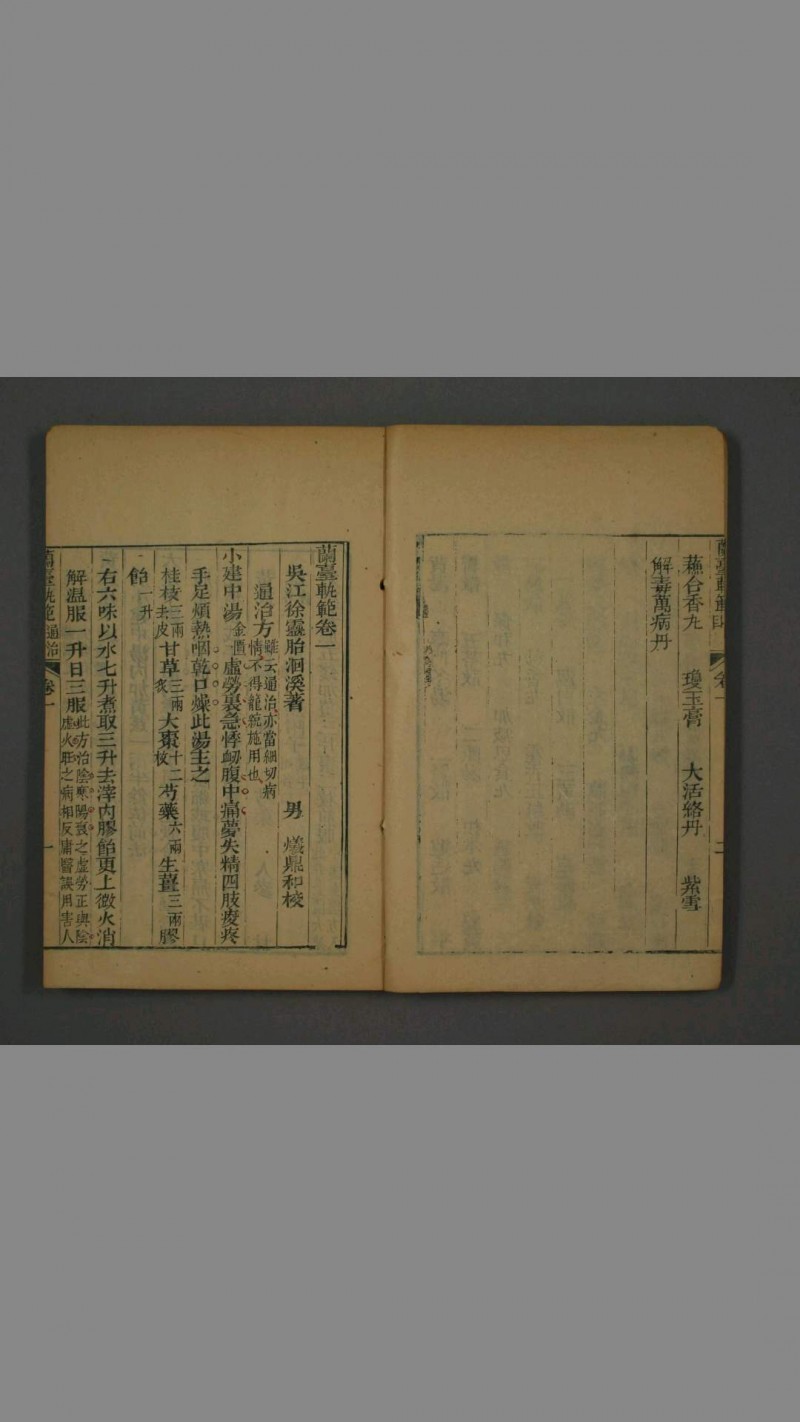 蘭臺軌範目
卷一
二
蘇合香丸　瓊玉膏　大活絡丹　紫雪
解毒萬病丹
蘭臺軌範卷一
吳江徐靈胎洄溪著　男　爔鼎和校
通治方雖云通治亦當細切病情不得籠統施用也
小建中湯金匱虛勞裏急悸衂腹中痛夢失精四肢痠疼
手足煩熱咽乾口燥此湯主之
桂枝三兩去皮甘草三兩炙大棗十二枚芍藥六兩生薑三兩膠
飴一升
右六味以水七升煮取三升去滓內膠飴更上微火消
解溫服一升日三服此方治陰寒陽衰之虛勞正與陰虛火旺之病相反庸醫誤用害人
蘭臺軌範通治
卷一
一